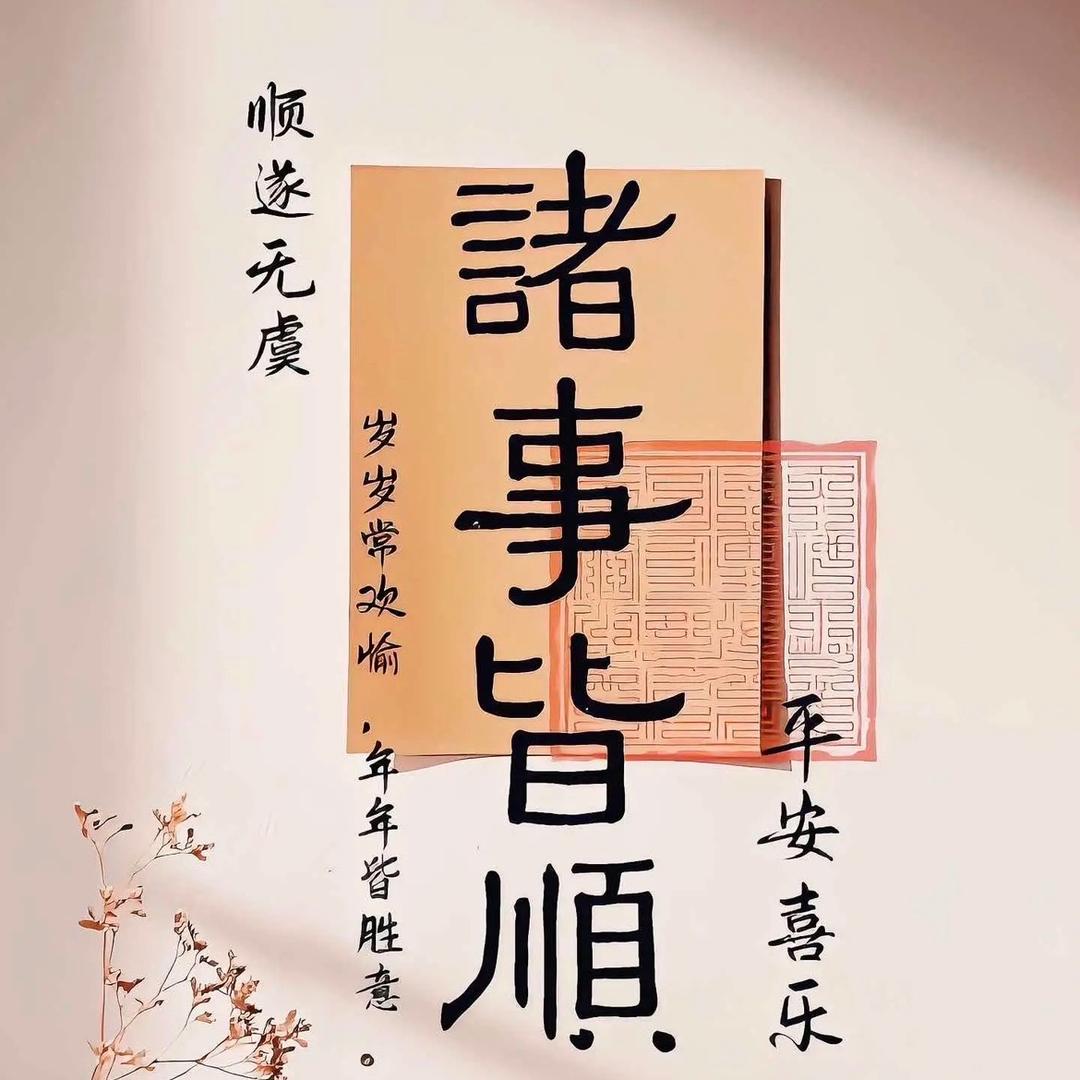 顺遂无虞
岁岁常欢愉
·年年皆胜意。
諸事皆順
平安喜乐